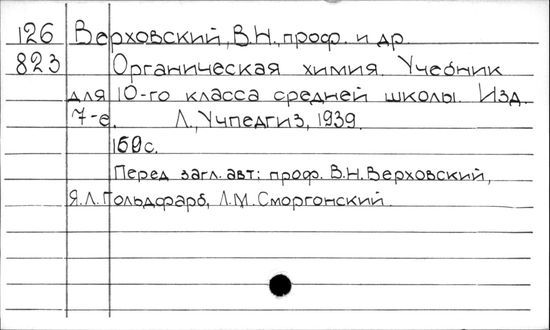 126 Верховский, В.Н., проф. и др.
823 Органическая химия. Учебник
для 10-го класса средней школы. Изд.
7-е. Л., Учпедгиз, 1939.
160с.
Перед загл. авт: проф. В.Н.Верховский,
Я.Л.Гольдфарб, Л.М.Сморгонский.